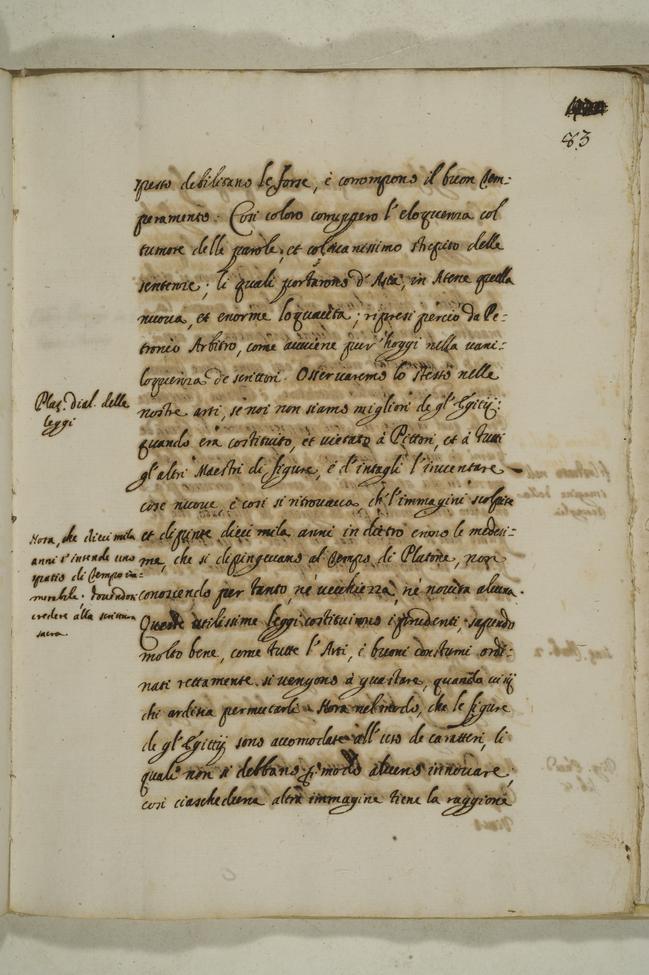 83
questo debilitano le forze, è corrompono il buon tem:
peramento. Così coloro corruppero l'eloquenza col
tumore delle parole, et col vanissimo strepito delle
sentenze; li quali portarono d'Asia, in Atene quella
nuova, et enorme loquacità; ripresi perciò da Pe:
tronio Arbitro, come auuiene pur'hoggi nella uani:
loquenza de scrittori. Osseruaremo lo stesso nelle
nostre arti, se noi non siamo migliori de gl'Egitij;
quando era costituito, et uietato à Pittori, et à tutti
gl'altri Maestri di figure, è d'intagli l'inuentare
cose nuoue, è così si ritrouaua ch'l'immagini scolpite
et dipinte dieci mila anni in dietro erano le medesi:
me, che si dipingeuano al tempo di Platone, non
conoscendo per tanto, nè uecchiezza, nè nouità alcuna.
Queste utilissime leggi costituirno i prudenti, sapendo
molto bene, come tutte l'Arti, i buoni constumi ordi:
nati rettamente si uengono à guastare, quando ui sij
chi ardisca permutarli. Hora nel modo, che le figure
de gl'Egittij sono accomodate all'uso de caratteri, li
quali non si debbano in modo alcuno innouare,
così ciascheduna altra immagine tiene la raggione
Plat. dial. delle
leggi
Hora, che dieci mila
anni s'intende uno
spatio di tempo im=
morabile. douendosi
credere alla scrittura
sacra.